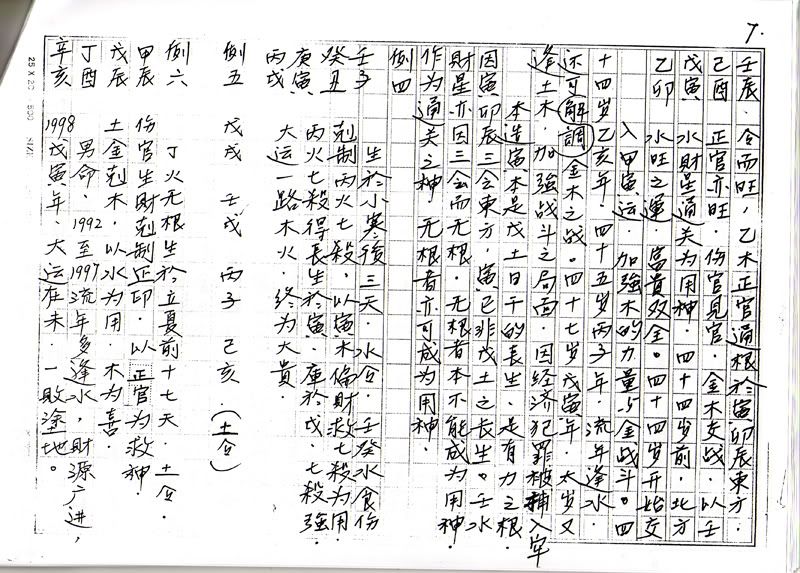 7.
壬辰．令而旺，乙木正官通根於寅卯辰東方．
己酉 正官亦旺．伤官見官．金木交战．以壬
戊寅 水財星通关为用神．四十四岁前．北方
乙卯 水旺之運．富貴双全。四十四岁开始交
入甲寅运．加強木的力量与金战斗。四
十四岁乙亥年．四十五岁丙子年．流年逢水．
还可解調金木之战．四十七岁戊寅年．太岁又
逢土木．加強战斗之局面．因经济犯罪被捕入牢
本造寅本是戊土日干的長生．是有力之根．
因寅卯辰三会東方．寅已非戊土之長生。壬水
財星亦因三会而无根．无根者本不能成为用神．
作为通关之神 无根者亦可成为用神．
例四
壬子 生於小寒後三天．水令．壬癸水食伤
癸丑 剋制丙火七殺．以寅木偏財救七殺为用
庚寅 丙火七殺得長生於寅．庫於戌．七殺強．
丙戌 大运一路木火．终为大貴．
例五 戊戌 壬戌 丙子 己亥．(土令)
例六 丁火无根生於立夏前十七天．土令．
甲辰 伤官生財剋制正印．以正官为救神．
戊辰 土金剋木，以水为用．木为喜．
丁酉 男命．1992至1997流年多逢水，財源广进，
辛亥 1998戊寅年．大运在未．一敗塗地。